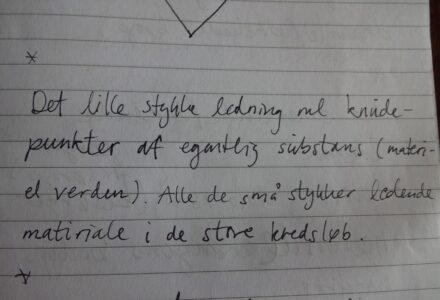 *
Det lille stykke ledning ml knude-
punkter af egentlig substans (materi-
el verden). Alle de små stykker ledende
matiriale i de store kredsløb.
*